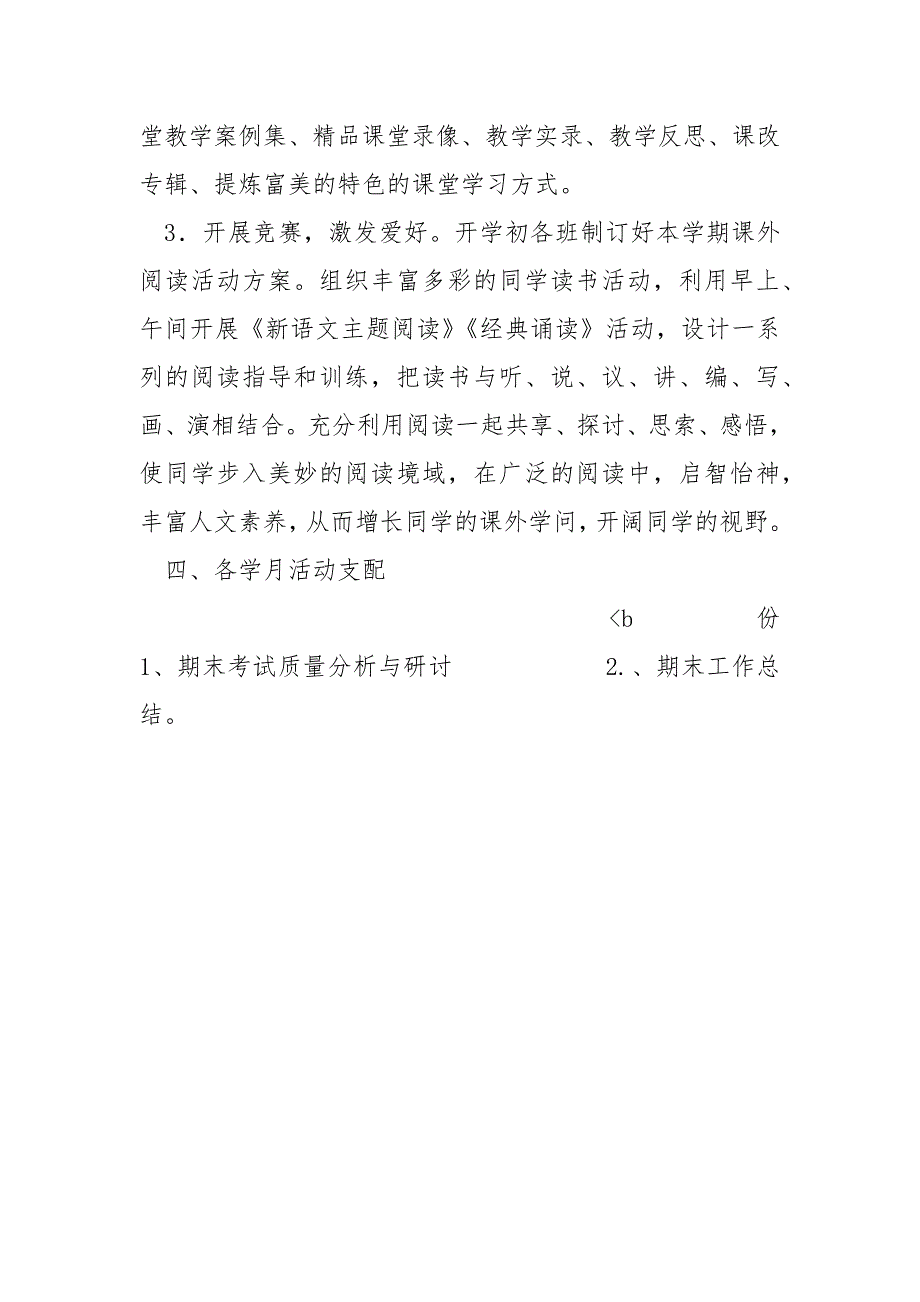 堂教学案例集、精品课堂录像、教学实录、教学反思、课改
专辑、提炼富美的特色的课堂学习方式。
3．开展竞赛，激发爱好。开学初各班制订好本学期课外
阅读活动方案。组织丰富多彩的同学读书活动，利用早上、
午间开展《新语文主题阅读》《经典诵读》活动，设计一系
列的阅读指导和训练，把读书与听、说、议、讲、编、写、
画、演相结合。充分利用阅读一起共享、探讨、思索、感悟，
使同学步入美妙的阅读境域，在广泛的阅读中，启智怡神，
丰富人文素养，从而增长同学的课外学问，开阔同学的视野。
四、各学月活动支配
<b 份
1、期末考试质量分析与研讨 2.、期末工作总
结。